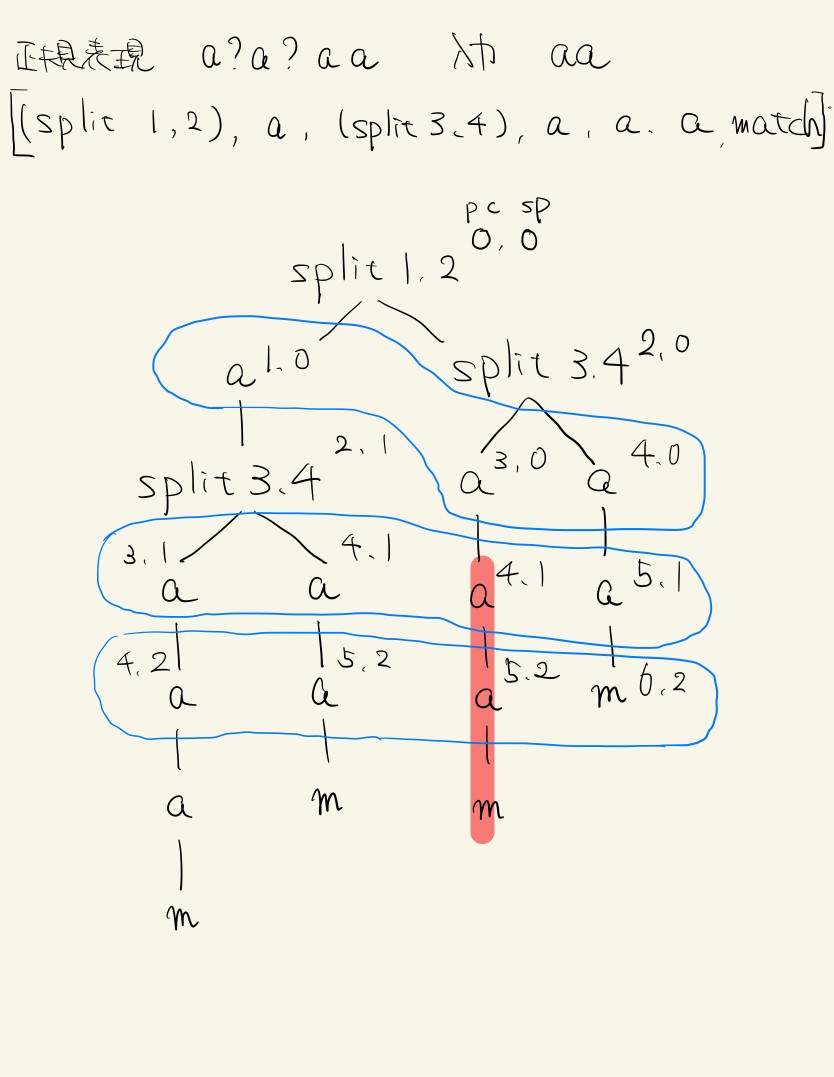 正規表現 a?a?aa 入力 aa
[(split 1,2), a, (split 3.4), a, a. a, match]
pc sp
0, 0
split 1. 2
a 1. 0
split 3.4 2, 0
split 3.4 2. 1
a 3, 0
a 4.0
3. 1
a
4. 1
a
a 4. 1
a 5. 1
4. 2
a
5. 2
a
a 5. 2
m 6. 2
a
m
m
m